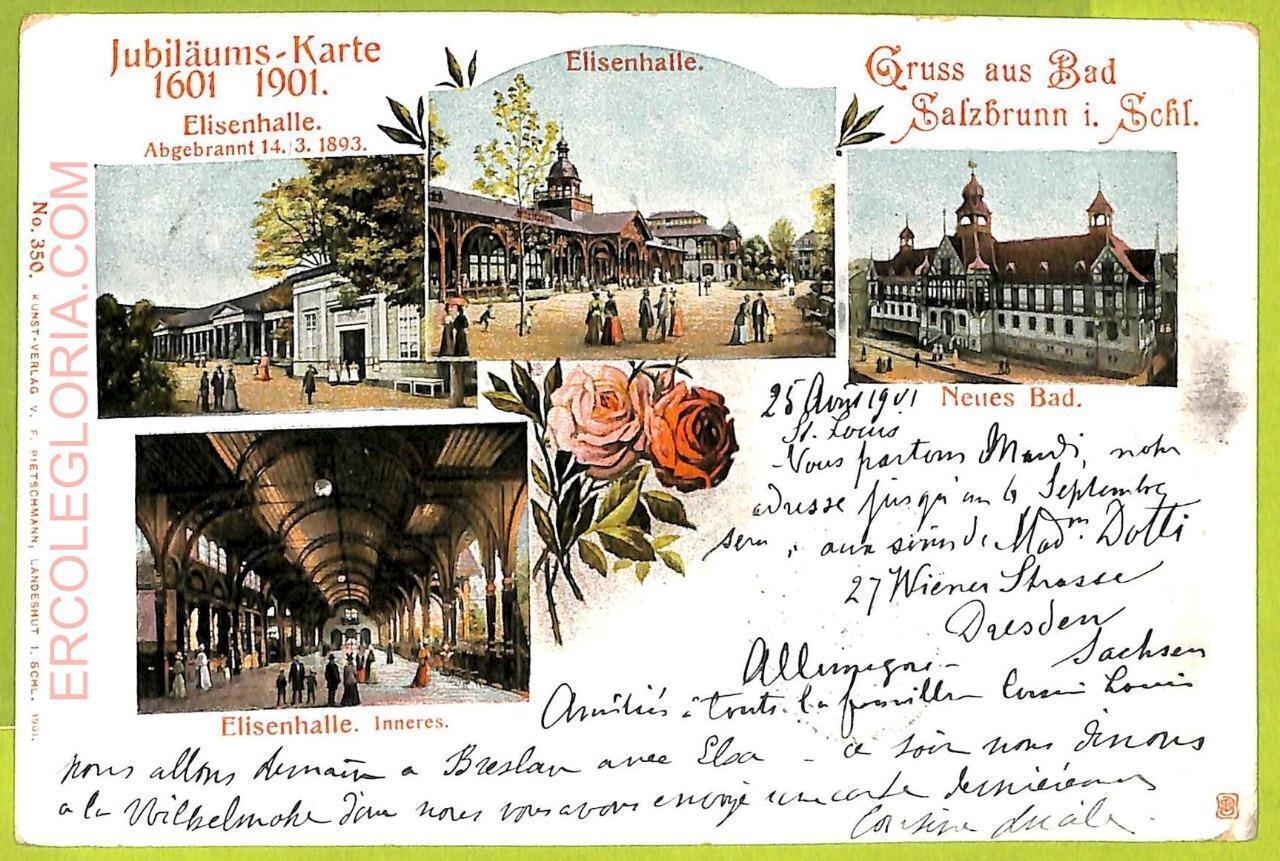 Jubiläums-Karte
1601 1901.
Elisenhalle.
Abgebrannt 14./3. 1893.
Elisenhalle.
Gruss aus Bad
Salzbrunn i. Schl.
Neues Bad.
Elisenhalle. Inneres.
No. 350. KUNST-VERLAG V. F. PIETSCHMANN, LANDESHUT I. SCHL. 1901.
ERCOLEGLORIA.COM
25 1901
St. Louis
Nous partons Mardi, notre
adresse jusqu'au 6 Septembre
sera, aux soins de Madm Dotti
27 Wiener Strasse
Dresden
Allemagne - Sachsen
Amitiés à toute la famille Cousin Louis
nous allons demain a Breslau avec Elsa - ce soir nous dinons
a la Wilhelmshöhe d'ou nous vous avons envoyé une carte dernièrement
Cousine